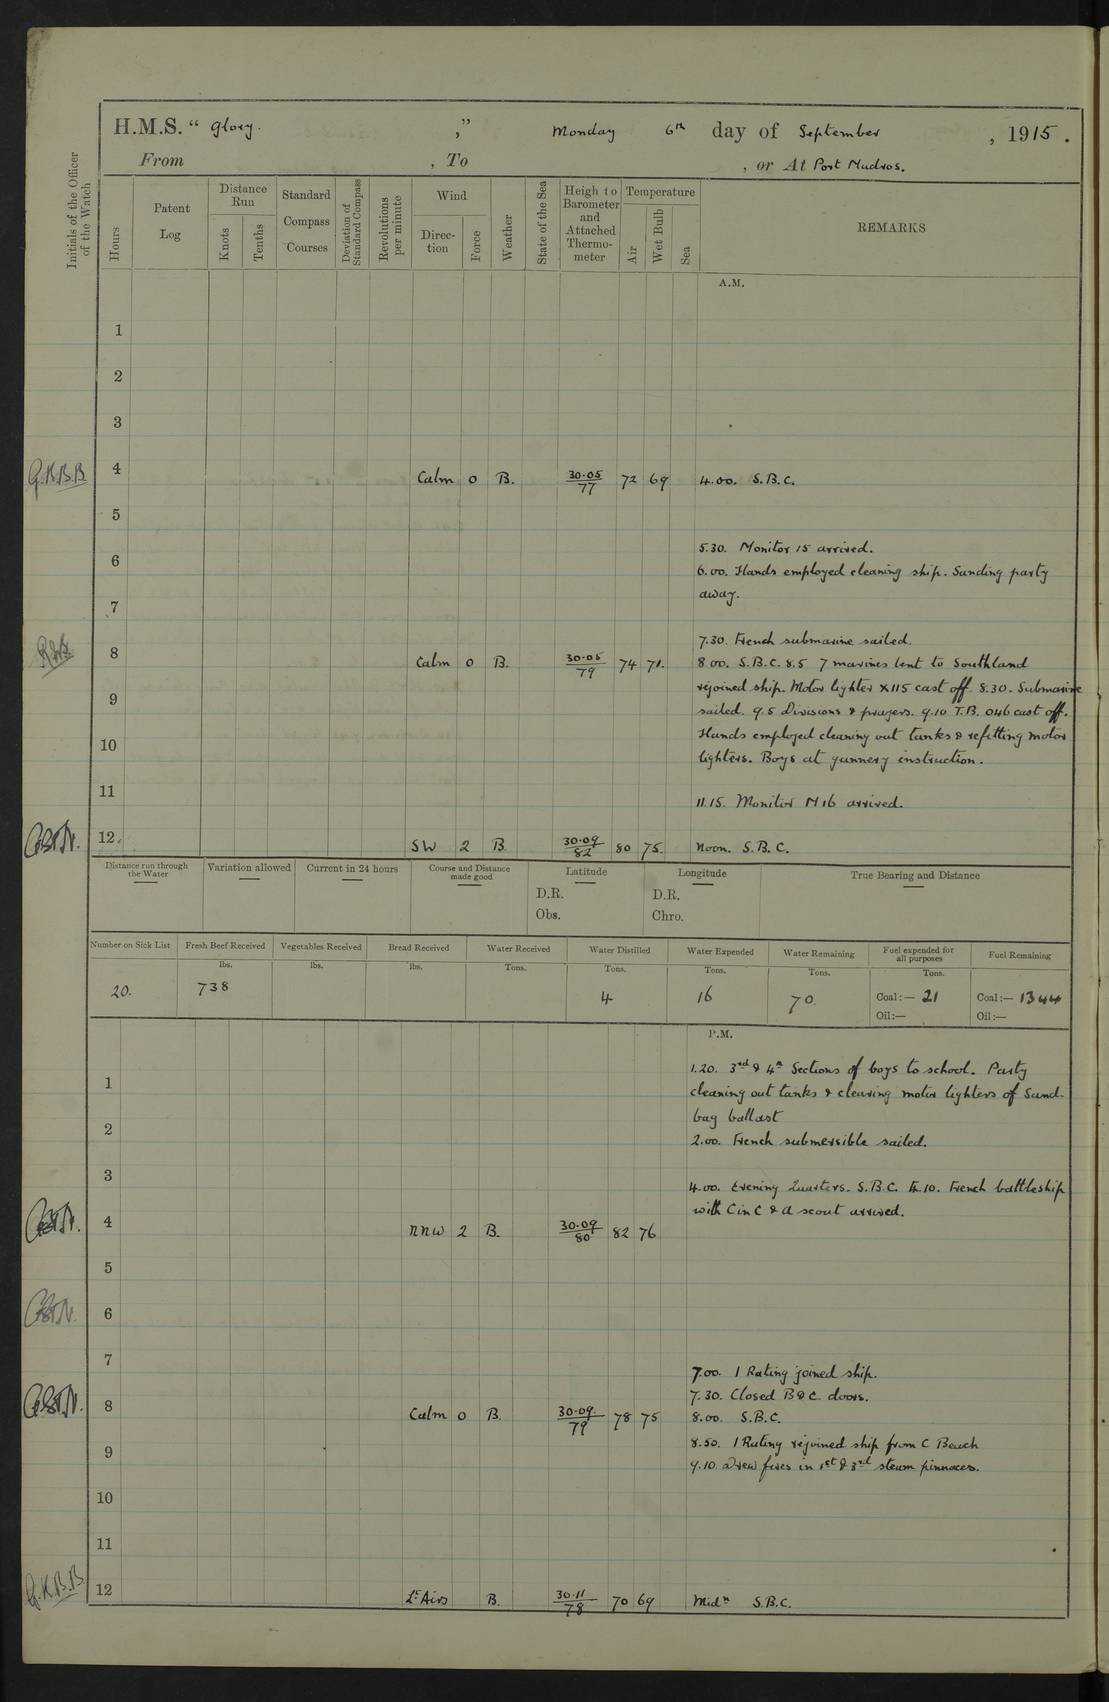 H.M.S. "Glory.," Monday 6th day of September, 1915.
From , To , or At Port Mudros.
Initials of the Officer of the Watch
Hours
Patent Log
Distance Run
Knots
Tenths
Standard Compass Courses
Deviation of Standard Compass
Revolutions per minute
Wind
Direction
Force
Weather
State of the Sea
Heigh to Barometer and Attached Thermometer
Temperature
Air
Wet Bulb
Sea
REMARKS
A.M.
1
2
3
G.K.B.B. 4 Calm 0 B. 30.05/77 72 69 4.00. S.B.C.
5
5.30. Monitor 15 arrived.
6
6.00. Hands employed cleaning ship. Sanding party
away.
7
7.30. French submarine sailed.
8 Calm 0 B. 30.05/79 74 71. 8.00. S.B.C. 8.5 7 marines lent to Southland
rejoined ship. Motor lighter X115 cast off. 8.30. Submarine
9
sailed. 9.5 Divisions & prayers. 9.10 T.B. 046 cast off.
Hands employed cleaning out tanks & refitting motor
10
lighters. Boys at gunnery instruction.
11
11.15. Monitor M16 arrived.
12. SW 2 B. 30.09/82 80 75. Noon. S.B.C.
Distance run through the Water
Variation allowed
Current in 24 hours
Course and Distance made good
Latitude
D.R.
Obs.
Longitude
D.R.
Chro.
True Bearing and Distance
Number on Sick List
20.
Fresh Beef Received
lbs.
738
Vegetables Received
lbs.
Bread Received
lbs.
Water Received
Tons.
Water Distilled
Tons.
4
Water Expended
Tons.
16
Water Remaining
Tons.
70.
Fuel expended for all purposes
Tons.
Coal:— 21
Oil:—
Fuel Remaining
Coal:— 1344
Oil:—
P.M.
1.20. 3rd & 4th Sections of boys to school. Party
1
cleaning out tanks & clearing motor lighters of Sand-
bag ballast
2
2.00. French submersible sailed.
3
4.00. Evening Quarters. S.B.C. 4.10. French battleship
with C in C & a scout arrived.
4 NNW 2 B. 30.09/80 82 76
5
6
7
7.00. 1 Rating joined ship.
7.30. Closed B & C doors.
8 Calm 0 B. 30.09/79 78 75 8.00. S.B.C.
8.50. 1 Rating rejoined ship from C Beach
9
9.10. Drew fires in 1st & 3rd steam pinnaces.
10
11
G.K.B.B. 12 Lt Airs B. 30.11/78 70 69 Midn S.B.C.